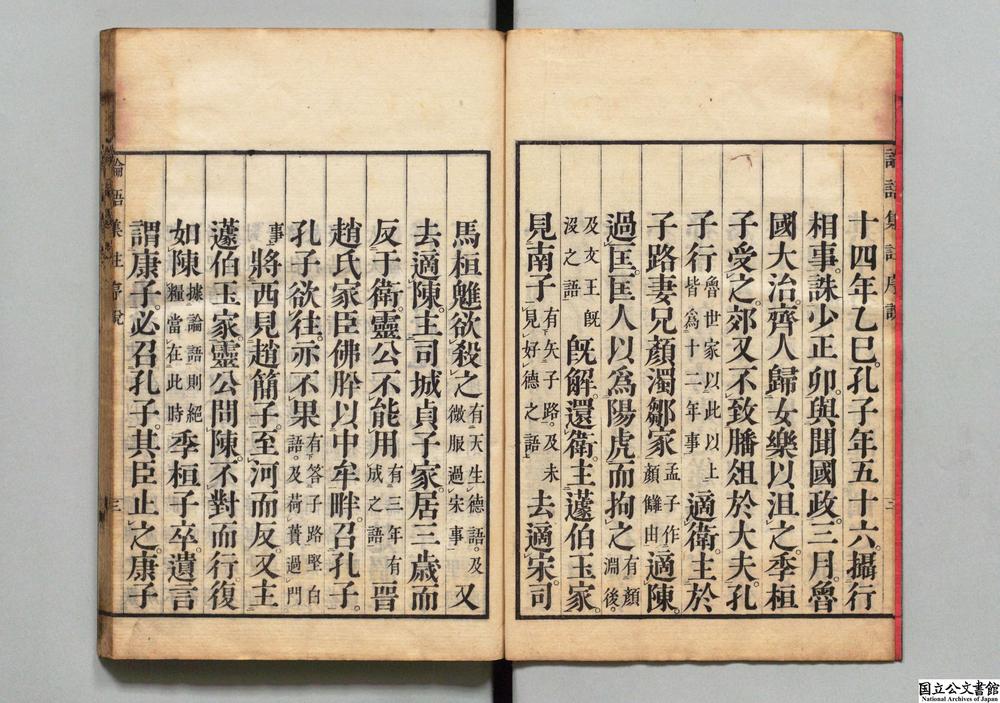 十四年乙巳。孔子年五十六。攝行
相事。誅少正卯。與聞國政。三月。魯
國大治。齊人歸女樂以沮之。季桓
子受之。郊又不致膰俎於大夫。孔
子行魯世家以此以上皆爲十二年事適衛。主於
子路妻兄顏濁鄒家孟子作顏讎由適陳。
過匡。匡人以爲陽虎而拘之有顏淵後。
及文王旣沒之語旣解。還衛。主蘧伯玉家。
見南子有矢子路。及未見好德之語去適宋。司
馬桓魋欲殺之有天生德語。及微服過宋事又
去適陳。主司城貞子家。居三歲而
反于衛。靈公不能用有三年有成之語晉
趙氏家臣佛肸以中牟畔。召孔子。
孔子欲往。亦不果有答子路堅白語。及荷蕢過門
事將西見趙簡子。至河而反。又主
蘧伯玉家。靈公問陳。不對而行。復
如陳據論語則絕糧當在此時季桓子卒。遺言
謂康子。必召孔子。其臣止之。康子
論語集註序說
三
論語集註序說
三
国立公文書館
National Archives of Japan